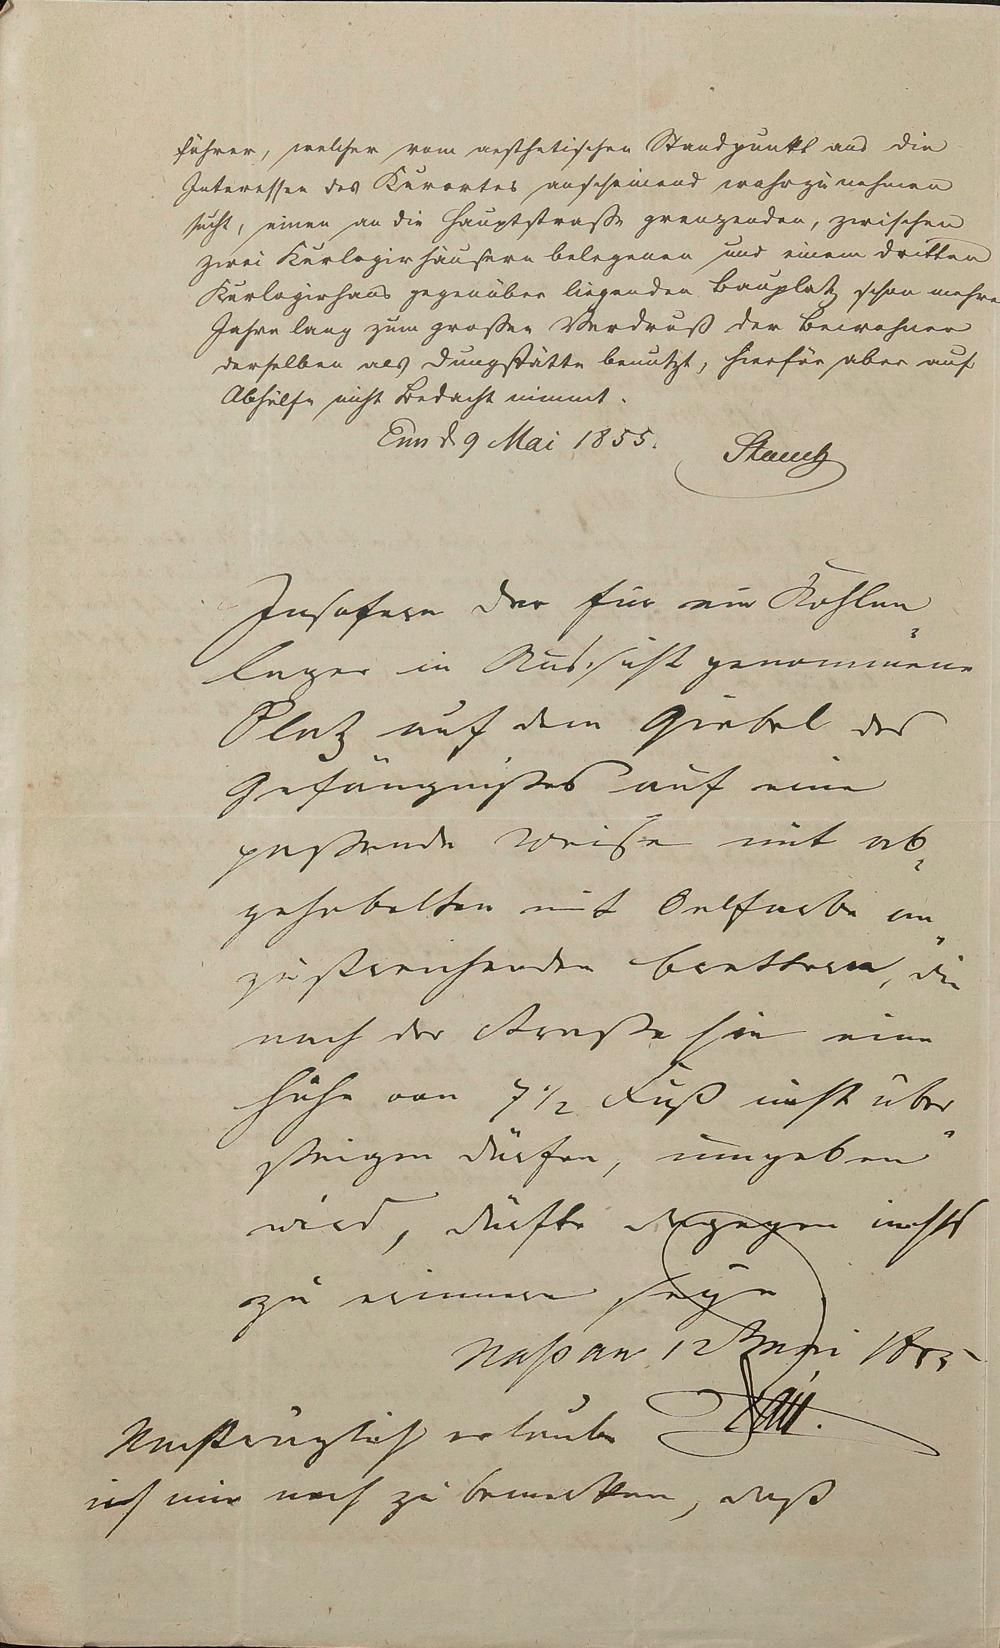 führer, welcher vom aesthetischen Standpunkt aus die
Interessen des Kurortes anscheinend wahrzunehmen
sucht, einen an die Hauptstraße grenzenden, zwischen
zwei Kurlogirhäusern belegenen und einem dritten
Kurlogirhaus gegenüber liegenden Bauplatz schon mehre
Jahre lang zum großen Verdruß der Bewohner
derselben als Dungstätte benutzt, hierfür aber auf
Abhülfe nicht Bedacht nimmt.
Ems d 9 Mai 1855.
Insofern der für ein Kohlen
lager in Aussicht genommene
Platz auf dem Giebel des
Gefängnißes auf eine
paßende Weise mit ab
gehobelten mit Oelfarbe an
zustreichenden Brettern, die
nach der Straße hin eine
Höhe von 7 1/2 Fuß nicht über
steigen dürfen, umgeben
wird, dürfte dagegen nichts
zu erinnern seyn
Naßau 12 Mai 1855
Nachträglich erlaube
ich mir noch zu bemerken, daß